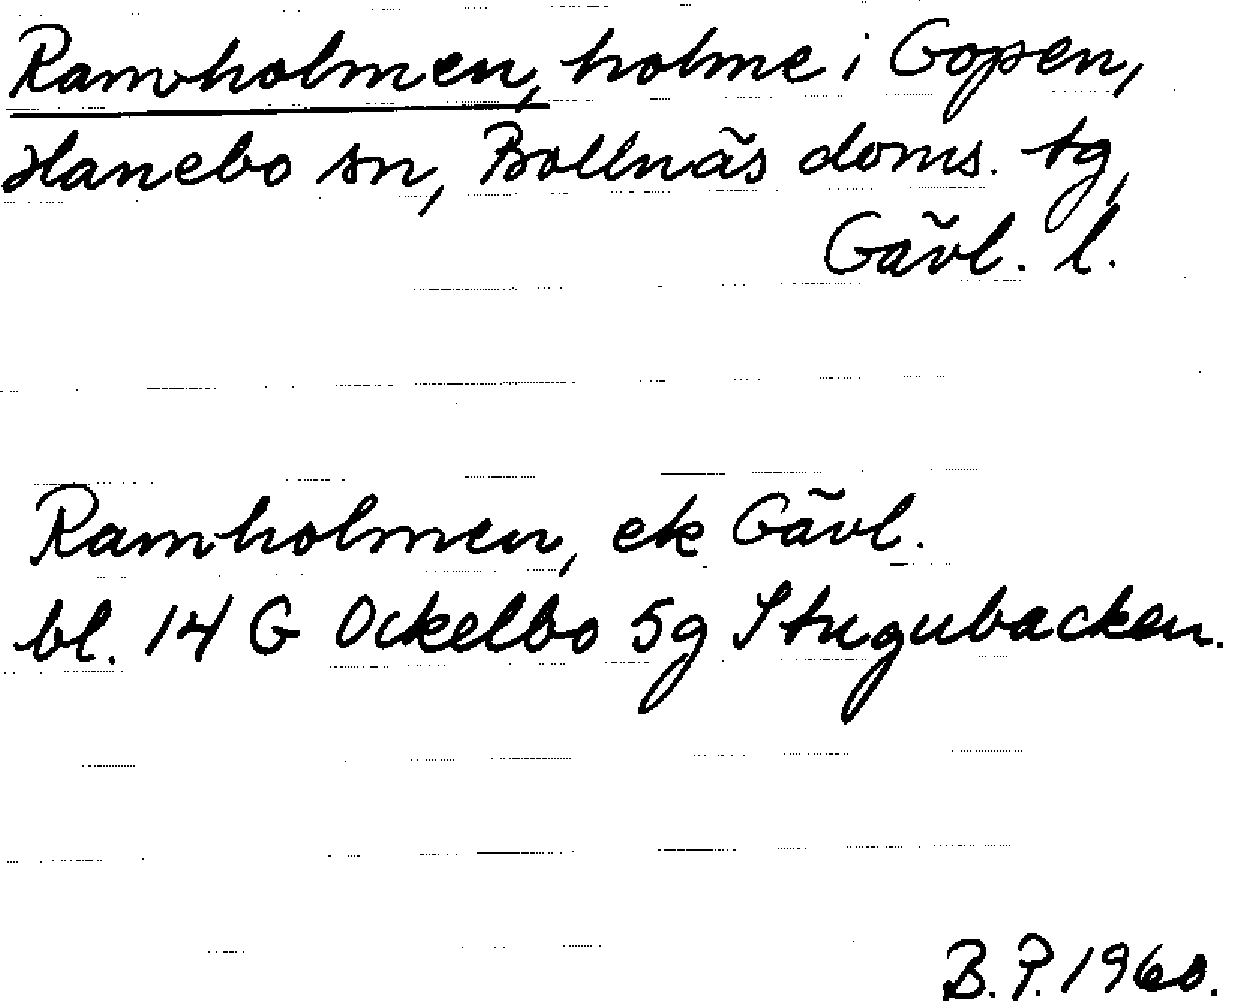 Ramholmen, holme i Gopen,
Hanebo sn, Bollnäs doms. tg,
Gävl. l.
Ramholmen, ek Gävl.
bl. 14 G Ockelbo 5g Stugubacken.
B. P. 1960.